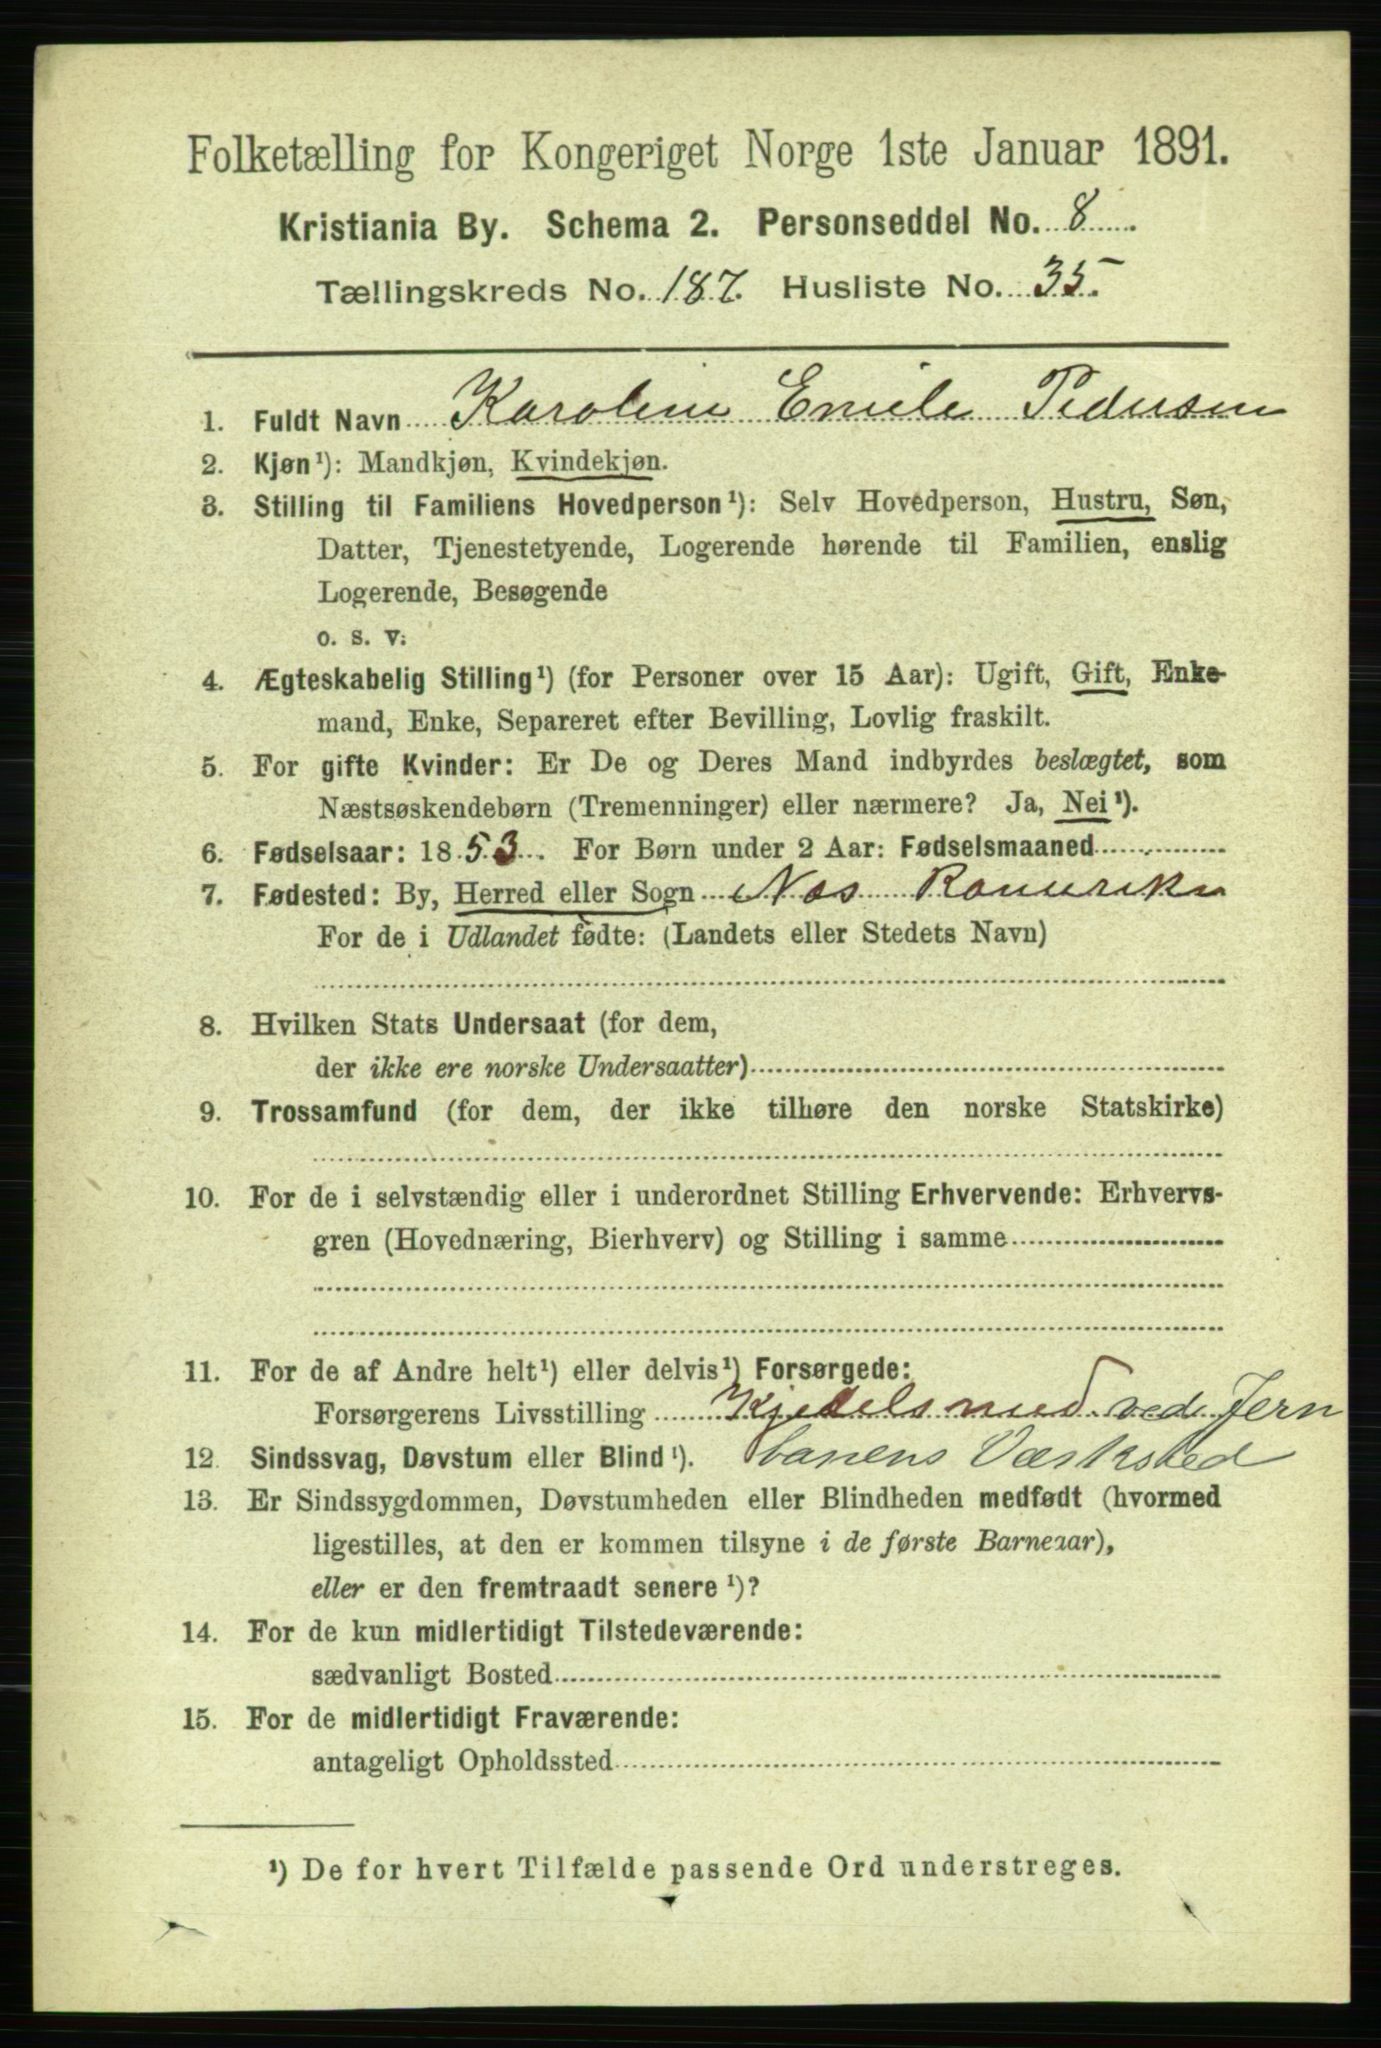 Folketælling for Kongeriget Norge 1ste Januar 1891.
Kristiania By. Schema 2. Personseddel No. 8
Tællingskreds No. 187. Husliste No. 35.
1. Fuldt Navn Karoline Emile Pedersen
2. Kjøn¹): Mandkjøn, Kvindekjøn.
3. Stilling til Familiens Hovedperson¹): Selv Hovedperson, Hustru, Søn,
Datter, Tjenestetyende, Logerende hørende til Familien, enslig
Logerende, Besøgende
o. s. v.
4. Ægteskabelig Stilling¹) (for Personer over 15 Aar): Ugift, Gift, Enke-
mand, Enke, Separeret efter Bevilling, Lovlig fraskilt.
5. For gifte Kvinder: Er De og Deres Mand indbyrdes beslægtet, som
Næstsøskendebørn (Tremenninger) eller nærmere? Ja, Nei¹).
6. Fødselsaar: 1853. For Børn under 2 Aar: Fødselsmaaned
7. Fødested: By, Herred eller Sogn Næs Romerike
For de i Udlandet fødte: (Landets eller Stedets Navn)
8. Hvilken Stats Undersaat (for dem,
der ikke ere norske Undersaatter)
9. Trossamfund (for dem, der ikke tilhøre den norske Statskirke)
10. For de i selvstændig eller i underordnet Stilling Erhvervende: Erhvervs-
gren (Hovednæring, Bierhverv) og Stilling i samme
11. For de af Andre helt¹) eller delvis¹) Forsørgede:
Forsørgerens Livsstilling Kjedelsmed ved Jern
12. Sindssvag, Døvstum eller Blind¹). banens Værksted
13. Er Sindssygdommen, Døvstumheden eller Blindheden medfødt (hvormed
ligestilles, at den er kommen tilsyne i de første Barneaar),
eller er den fremtraadt senere¹)?
14. For de kun midlertidigt Tilstedeværende:
sædvanligt Bosted
15. For de midlertidigt Fraværende:
antageligt Opholdssted
¹) De for hvert Tilfælde passende Ord understreges.